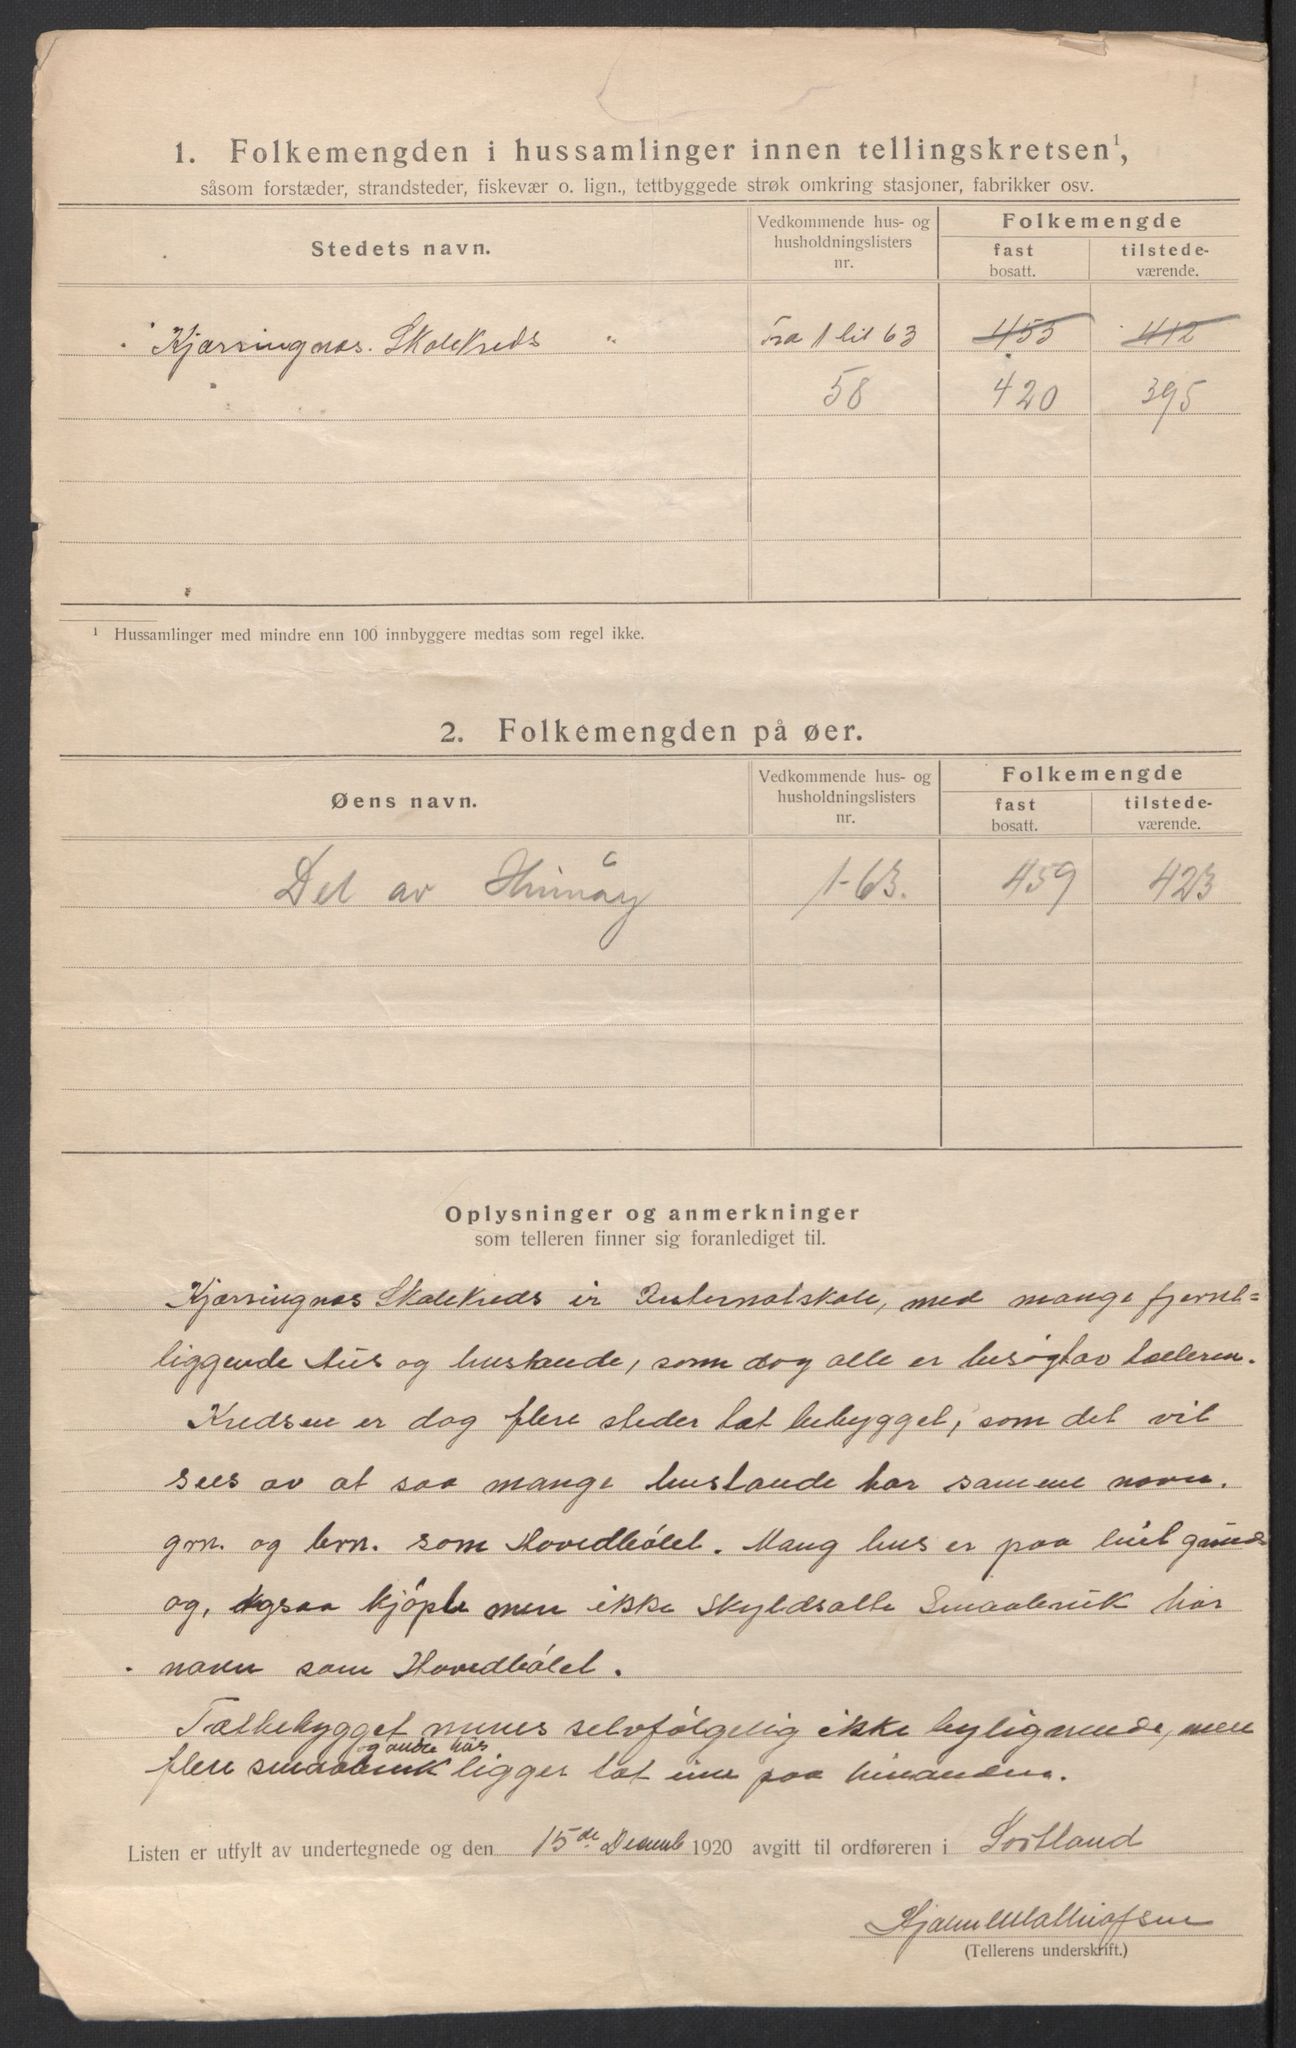 1. Folkemengden i hussamlinger innen tellingskretsen¹,
såsom forstæder, strandsteder, fiskevær o. lign., tettbyggede strøk omkring stasjoner, fabrikker osv.
Stedets navn.
Vedkommende hus- og husholdningslisters nr.
Folkemengde
fast bosatt.
tilstede-værende.
Kjærringnæs Skolekreds " Fra 1 til 63 455 412
58 420 395
¹ Hussamlinger med mindre enn 100 innbyggere medtas som regel ikke.
2. Folkemengden på øer.
Øens navn.
Vedkommende hus- og husholdningslisters nr.
Folkemengde
fast bosatt.
tilstede-værende.
Del av Hinnöy 1-63. 459 423
Oplysninger og anmerkninger
som telleren finner sig foranlediget til.
Kjærringnæs Skolekreds er Internatskole, med mange fjernt=
liggende Hus og hustande, som dog alle er besøgt av tælleren.
Kredsen er dog flere steder tæt bebygget, som det vil
sees av at saa mange hustande har samme navn,
grn. og brn. som Hovedbölet. Mang hus er paa
og, ogsaa kjöpte men ikke skyldsatte Smaabruk har
navn som Hovedbölet.
Tætbebygget menes selvfölgelig ikke bylignende, men
og andre hus
flere smaabruk ligger tæt inn paa hinanden.
Listen er utfylt av undertegnede og den 15de Decemb 1920 avgitt til ordføreren i Sortland
Hjalm Mathiassen
(Tellerens underskrift.)